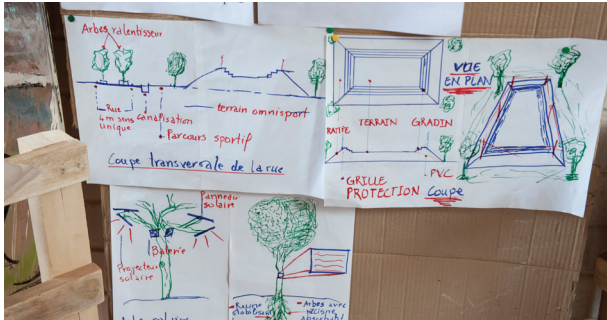 Arbes ralentisseur
Rue
4m sens
unique
canalisation
Parcours sportif
terrain omnisport
Coupe transverrale de la rue
VUE
EN PLAN
TERRAIN GRADIN
PVC
GRILLE
PROTECTION COUPE
Panneau
solaire
Baterie
Projecteur
solaire
Racine
stabilisant
Arbes avec